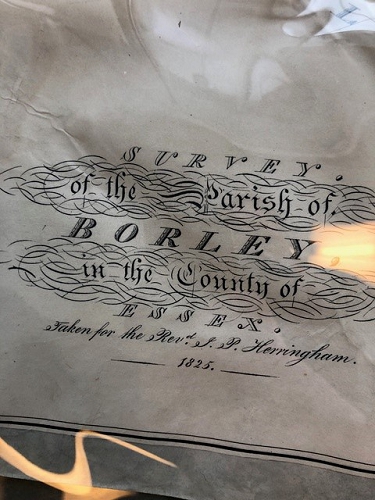 SURVEY.
of the Parish of.
BORLEY
in the County of
ESSEX.
Taken for the Revd. J. P. Herringham.
1825.